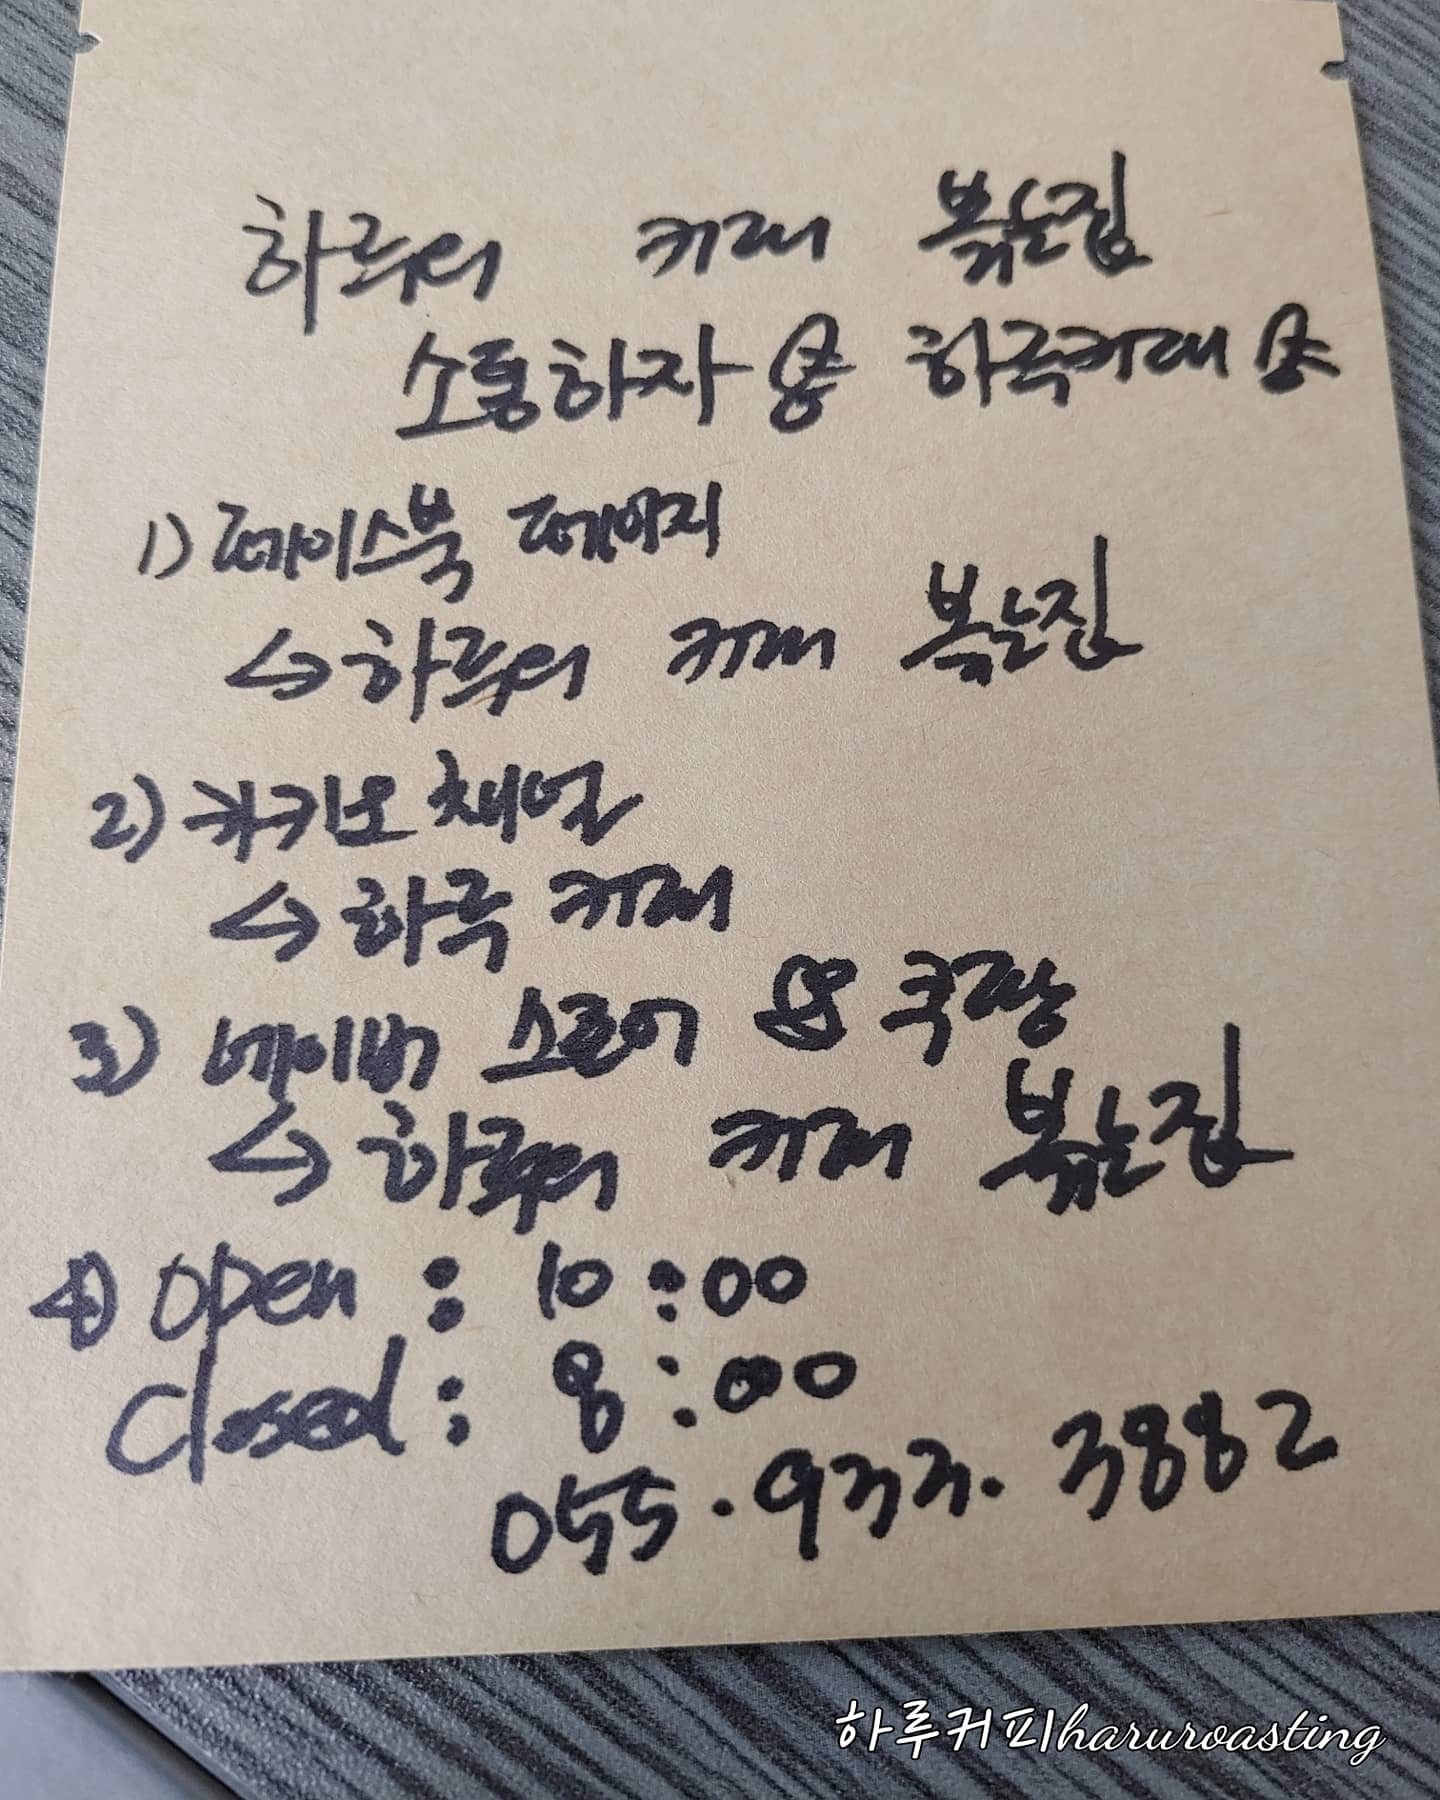 하루의 커피 볶는집
소통하자 & 하루커피 &
1) 페이스북 페이지
↔ 하루의 커피 볶는집
2) 카카오 채널
↔ 하루 커피
3) 네이버 스토어 & 쿠팡
↔ 하루의 커피 볶는집
4) Open : 10:00
Closed : 8:00
055.933.3882
하루커피haruroasting